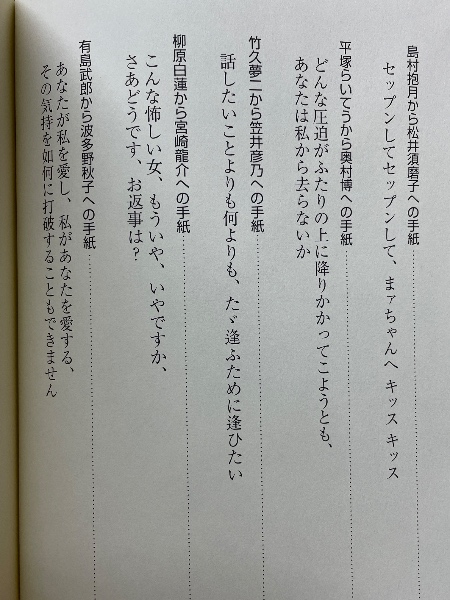 島村抱月から松井須磨子への手紙
セップンしてセップンして、まァちゃんへ キッス キッス
平塚らいてうから奥村博への手紙
どんな圧迫がふたりの上に降りかかってこようとも、
あなたは私から去らないか
竹久夢二から笠井彦乃への手紙
話したいことよりも何よりも、たゞ逢ふために逢ひたい
柳原白蓮から宮崎龍介への手紙
こんな怖しい女、もういや、いやですか、
さあどうです、お返事は？
有島武郎から波多野秋子への手紙
あなたが私を愛し、私があなたを愛する、
その気持を如何に打破することもできません